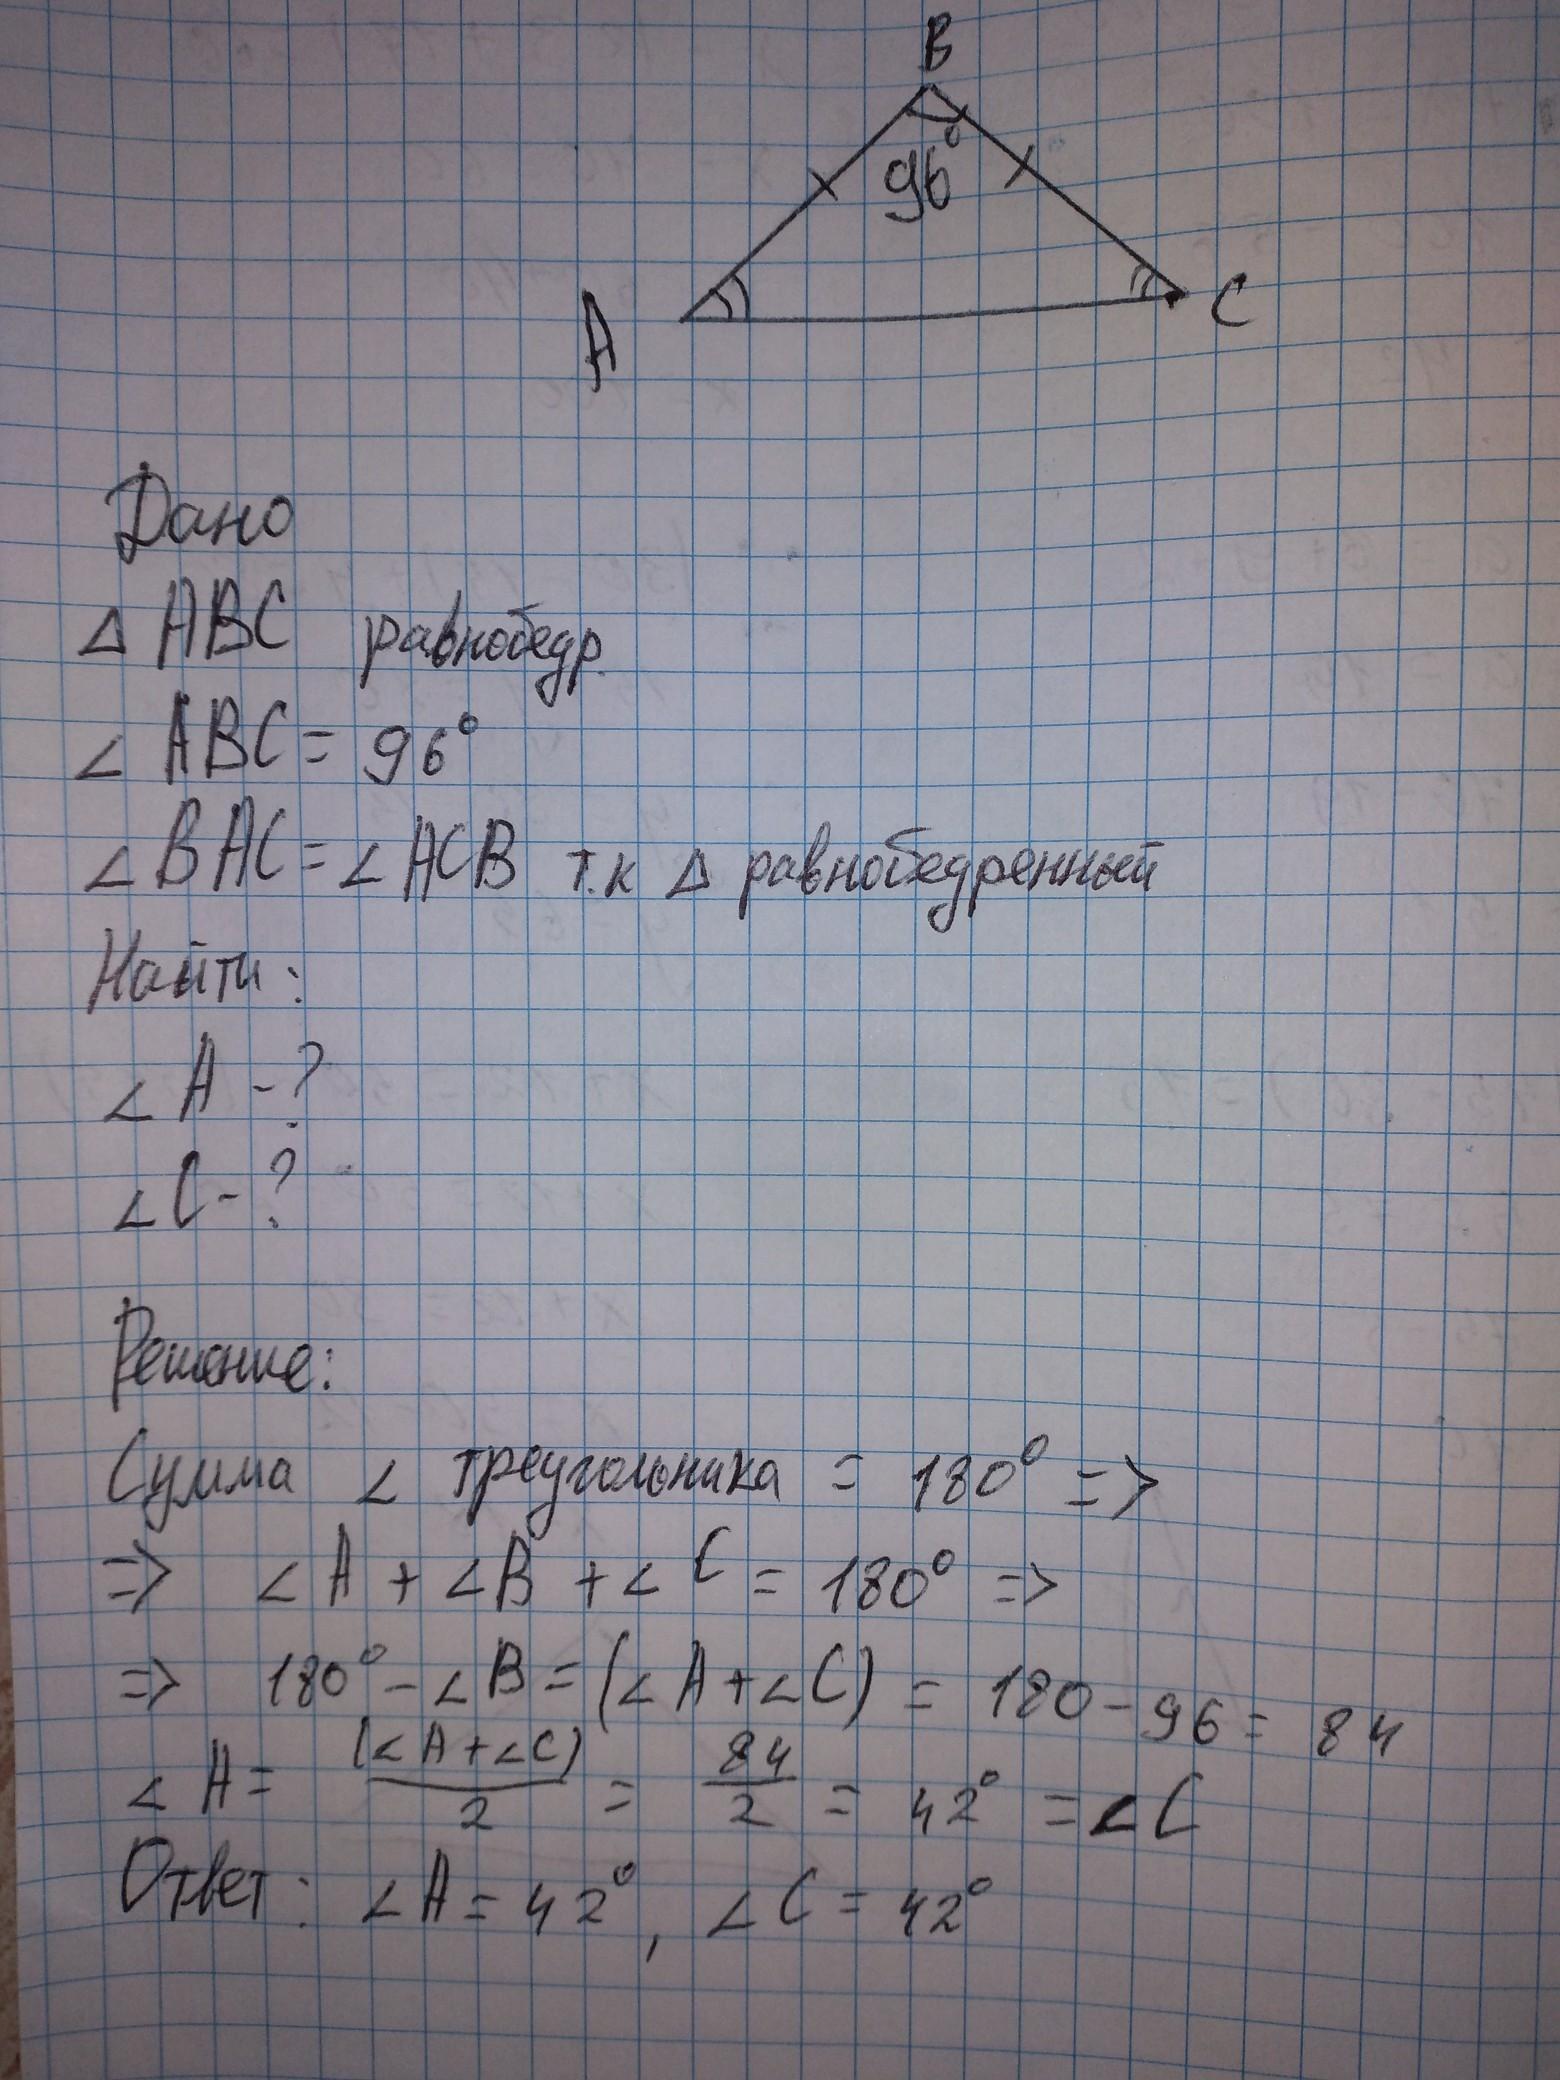 B
96°
A
C
Дано
Δ ABC равнобедр.
∠ ABC = 96°
∠ BAC = ∠ ACB т.к Δ равнобедренный
Найти:
∠ A - ?
∠ C - ?
Решение:
Сумма ∠ треугольника = 180° =>
=> ∠A + ∠B + ∠C = 180° =>
=> 180° - ∠B = (∠A + ∠C) = 180 - 96 = 84
∠ A = (∠A + ∠C) / 2 = 84 / 2 = 42° = ∠C
Ответ: ∠A = 42°, ∠C = 42°